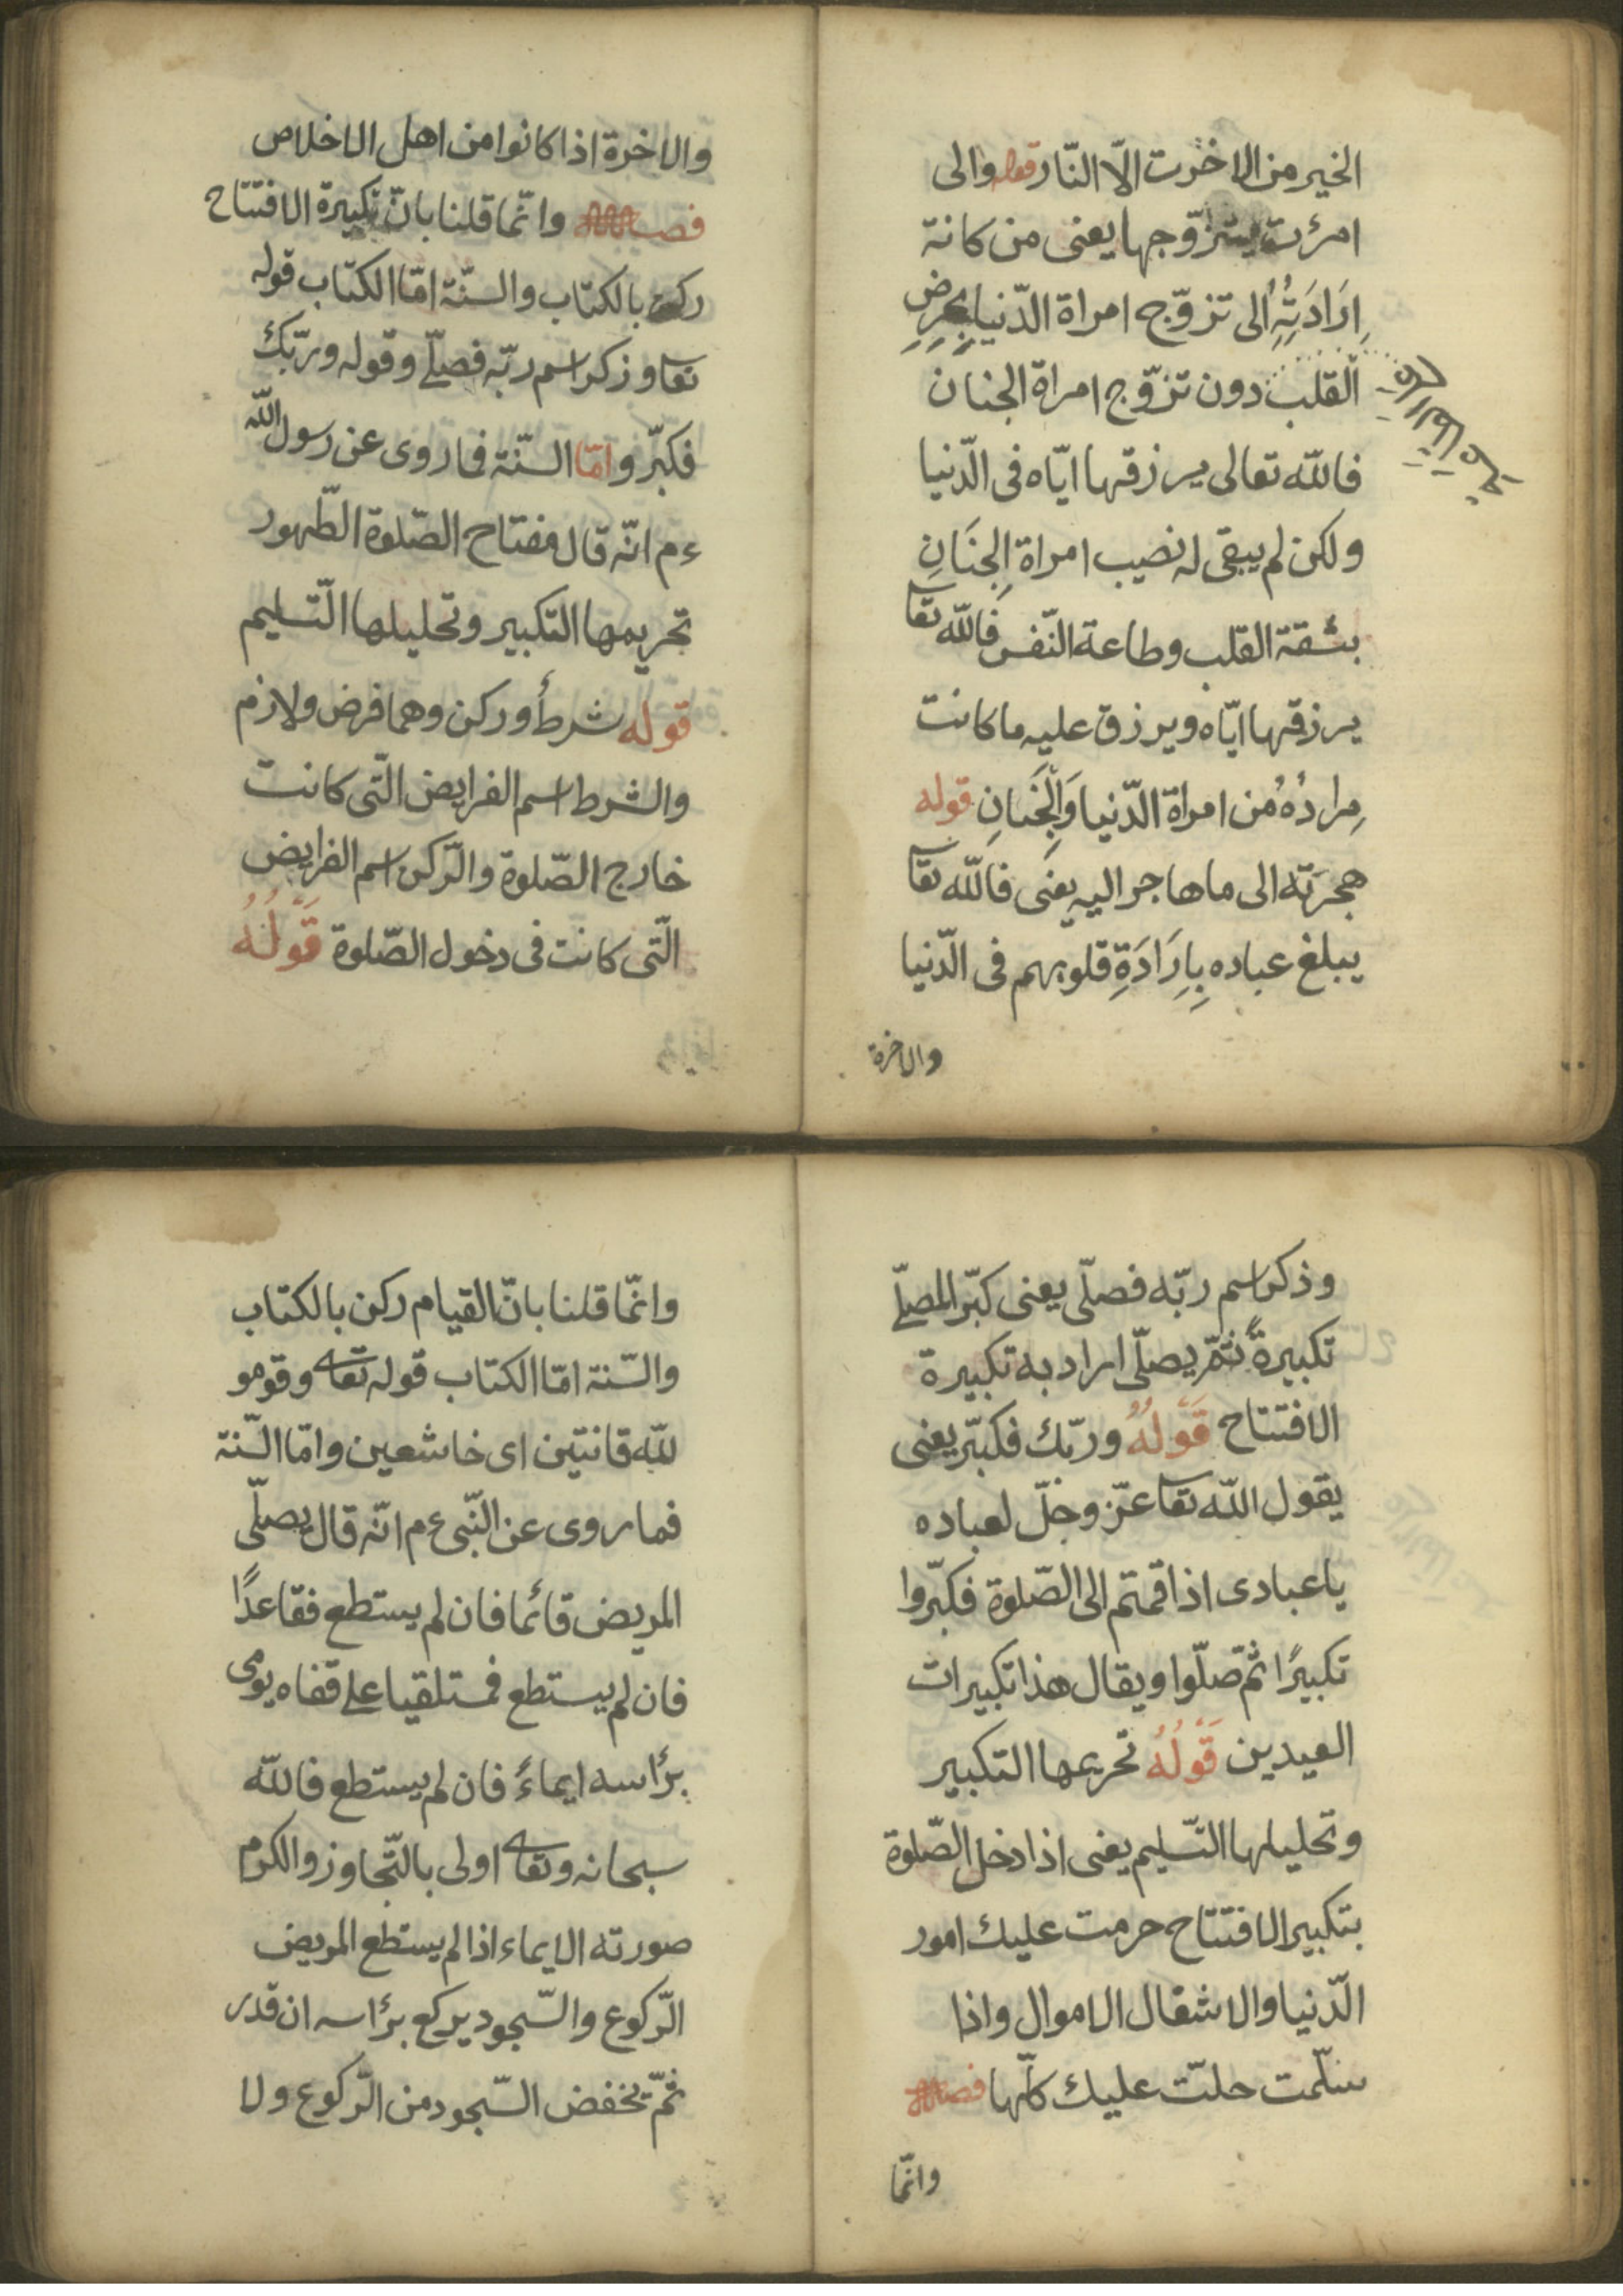 الخير من الاخرت الّا النّار قوله والى
امرئت يتزوّجها يعنى من كانة
اِرَادَتُهُ الى تزوّج امراة الدّنيا
القلب دون تزوّج امراة الجنان
فاللّه تعالى يرزقها ايّاه فى الدّنيا
ولكن لم يبقى له نصيب امراة الجِنَانِ
بثقة القلب وطاعة النّفس فاللّه تعا
يرزقها ايّاه ويرزق عليه ما كانت
مِرادُهُ من امراة الدّنيا وَالْجَنانِ قوله
هجرَته الى ما هاجر اليه يعنى فاللّه تعا
يبلغ عباده بِاِرَادَةِ قلوبهم فى الدّنيا
والاخرة
والاخرة اذا كانوا من اهل الاخلاص
فصل وانّما قلنا بانّ تكبيرة الافتتاح
ركن بالكتاب والسنّة امّا الكتاب قوله
تعا وذكر اسم ربّه فصلّى وقوله وربّك
فكبّر وامّا السنّة فما روى عن رسول اللّه
ءم انّه قال مفتاح الصّلوة الطّهور
تحريمها التكبير وتحليلها التّسليم
قوله شرط أو ركن وهما فرض ولازم
والشرط اسم الفرايض الّتى كانت
خارج الصّلوة والرّكن اسم الفرايض
الّتى كانت فى دخول الصّلوة قَوْلُهُ
وذكر اسم ربّه فصلّى يعنى كبّر المصلّى
تكبيرةً ثمّ يصلّى اراد به تكبيرة
الافتتاح قَوْلُهُ وربّك فكبّر يعنى
يقول اللّه تعا عزّ وجلّ لعباده
يا عبادى اذا قمتم الى الصّلوة فكبّروا
تكبيرًا ثمّ صلّوا ويقال هذا تكبيرات
العيدين قَوْلُهُ تحريمها التكبير
وتحليلها التّسليم يعنى اذا دخل الصّلوة
بتكبير الافتتاح حرمت عليك امور
الدّنيا والاشغال الاموال واذا
سلّمت حلّت عليك كلّها فصل
وانّما
وانّما قلنا بانّ القيام ركن بالكتاب
والسّنة امّا الكتاب قوله تعا وقومو
للّه قانتين اى خاشعين وامّا السّنة
فما روى عن النّبى ءم انّه قال يصلّى
المريض قائما فان لم يستطع فقاعدًا
فان لم يستطع فمستلقيا على قفاه يومى
برأسه ايماءً فان لم يستطع فاللّه
سبحانه وتعا اولى بالتّجاوز والكرم
صورته الايماء اذا لم يستطع المريض
الرّكوع والسّجود يركع برأسه ان قدر
ثمّ يخفض السّجود من الرّكوع ولا